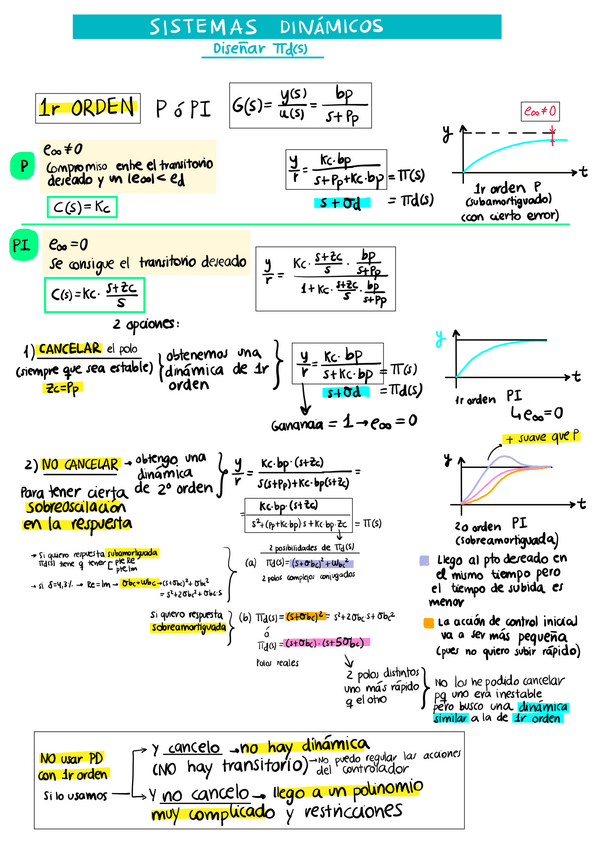 SISTEMAS DINÁMICOS
Diseñar Πd(s)
1r ORDEN P ó PI G(s) = y(s)/u(s) = bp/(s+Pp)
P
e∞ ≠ 0
Compromiso entre el transitorio
deseado y un |e∞| < ed
C(s) = Kc
y/r = Kc·bp/(s+Pp+Kc·bp) = Π(s)
s+σd = Πd(s)
e∞≠0
y
t
1r orden P
(subamortiguado)
(con cierto error)
PI
e∞ = 0
Se consigue el transitorio deseado
C(s) = Kc · (s+zc)/s
y/r = (Kc · (s+zc)/s · bp/(s+Pp))/(1+Kc · (s+zc)/s · bp/(s+Pp))
2 opciones:
1) CANCELAR el polo
(siempre que sea estable)
zc=Pp
obtenemos una
dinámica de 1r
orden
y/r = Kc·bp/(s+Kc·bp) = Π(s)
s+σd = Πd(s)
Ganancia = 1 → e∞ = 0
y
t
1r orden PI
↳ e∞=0
2) NO CANCELAR → obtengo una
dinámica
de 2º orden
Para tener cierta
sobreoscilación
en la respuesta
y/r = Kc·bp·(s+zc)/(s(s+Pp)+Kc·bp(s+zc)) =
Kc·bp·(s+zc)/(s²+(Pp+Kc·bp)s+Kc·bp·zc) = Π(s)
+ suave que P
y
t
2o orden PI
(sobreamortiguada)
→ Si quiero respuesta subamortiguada
Πd(s) tiene q tener pte Re
pte Im
→ si δ=4,3% → Re=Im → σbc=wbc → (s+σbc)²+σbc²
= s²+2σbc²+σbc·s
2 posibilidades de Πd(s)
(a) Πd(s) = (s+σbc)²+wbc²
2 polos complejos conjugados
Si quiero respuesta
sobreamortiguada
(b) Πd(s) = (s+σbc)² = s²+2σbc·s+σbc²
ó
Πd(s) = (s+σbc)·(s+5σbc)
Polos reales
Llego al pto deseado en
el mismo tiempo pero
el tiempo de subida es
menor
La acción de control inicial
va a ser más pequeña
(pues no quiero subir rápido)
2 polos distintos
uno más rápido
q el otro
No los he podido cancelar
pq uno era inestable
pero busco una dinámica
similar a la de 1r orden
NO usar PD
con 1r orden
Si lo usamos
→ Y cancelo → no hay dinámica
(NO hay transitorio) → No puedo regular las acciones
del controlador
→ Y no cancelo → llego a un polinomio
muy complicado y restricciones